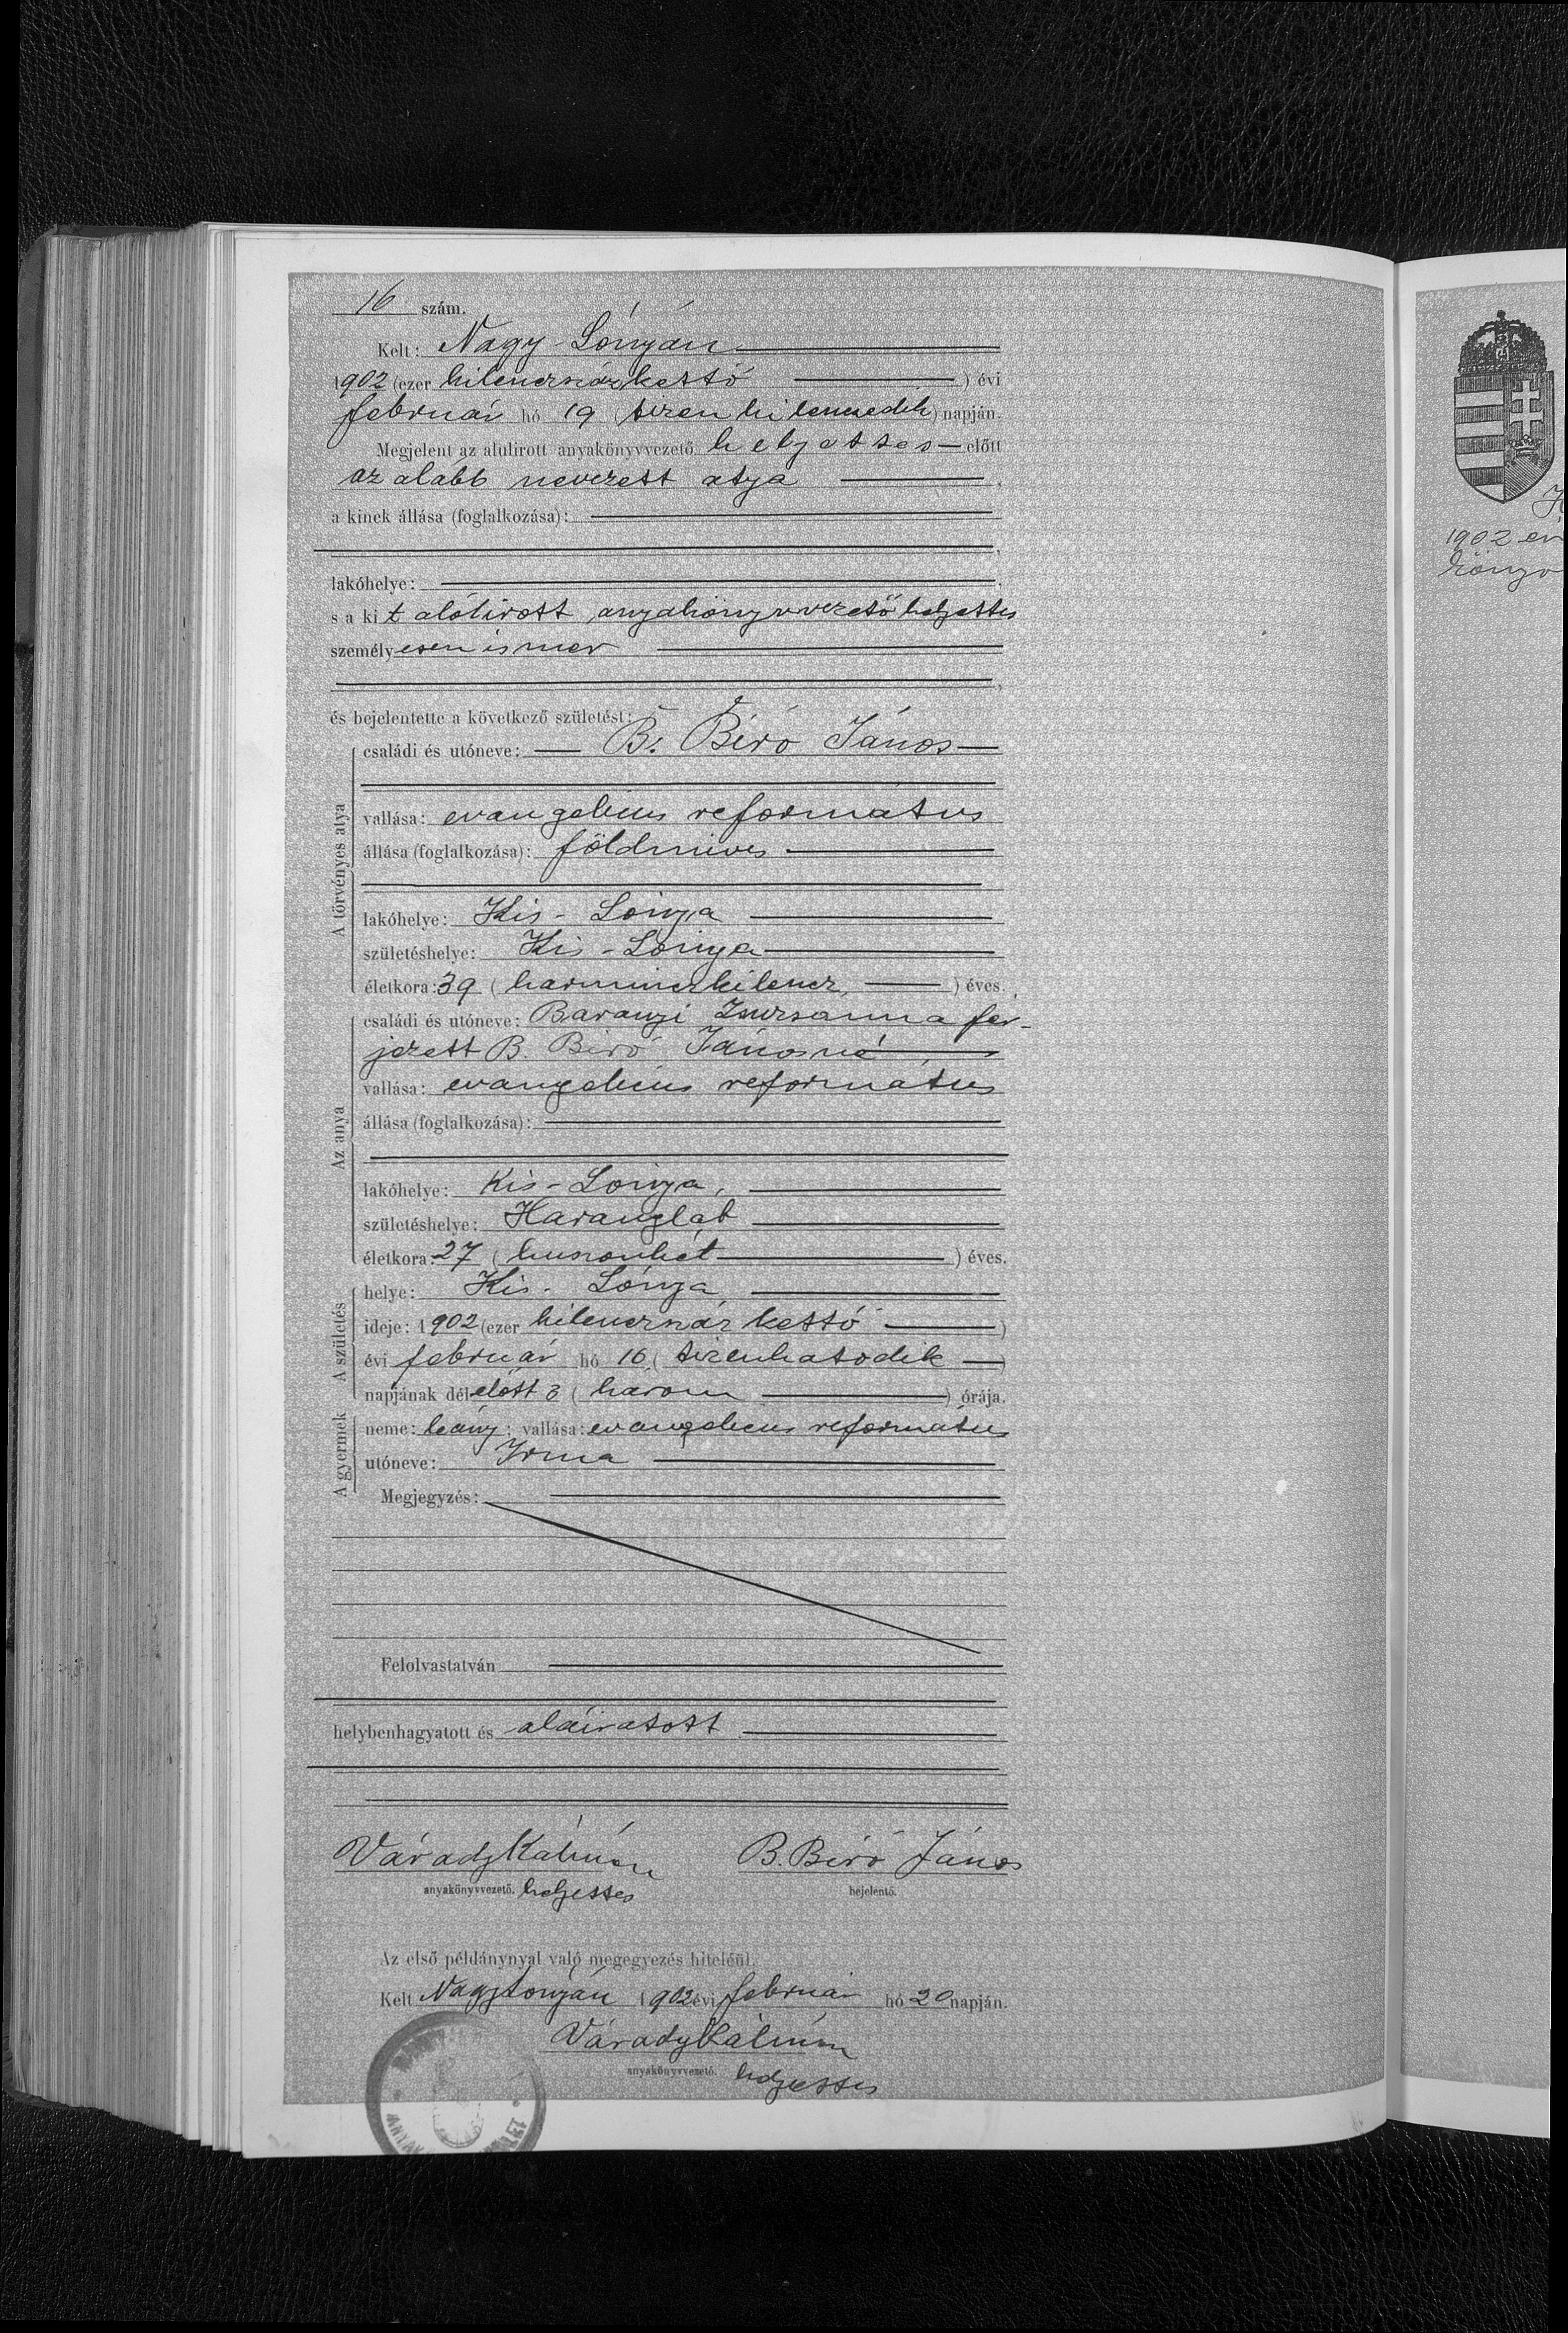 16 szám.
Kelt: Nagy-Lónyán
1902 (ezer kilenczszázkettő) évi
február hó 19 (tizenkilenczedik) napján.
Megjelent az alulirott anyakönyvvezető helyettes előtt
az alább nevezett atya,
a kinek állása (foglalkozása):
lakóhelye:
s a kit alólirott anyakönyvvezető helyettes
személyesen ismer
és bejelentette a következő születést:
A törvényes atya
családi és utóneve: B. Biró János
vallása: evangelicus református
állása (foglalkozása): földmives
lakóhelye: Kis-Lónya
születéshelye: Kis-Lónya
életkora: 39 (harminczkilencz) éves.
Az anya
családi és utóneve: Baranyi Zsuzsanna fér-
jezett B. Biró Jánosné
vallása: evangelicus református
állása (foglalkozása):
lakóhelye: Kis-Lónya,
születéshelye: Harangláb
életkora: 27 (huszonhét) éves.
A születés
helye: Kis-Lónya
ideje: 1902 (ezer kilenczszázkettő)
évi február hó 16 (tizenhatodik)
napjának délelőtt 3 (három) órája.
A gyermek
neme: leány; vallása: evangelicus református
utóneve: Irma
Megjegyzés:
Felolvastatván
helybenhagyatott és aláiratott
Várady Kálmán B. Biró János
anyakönyvvezető. helyettes bejelentő.
Az első példánynyal való megegyezés hiteléül.
Kelt Nagylónyán 1902 évi február hó 20 napján.
Várady Kálmán
anyakönyvvezető. helyettes
1902 év